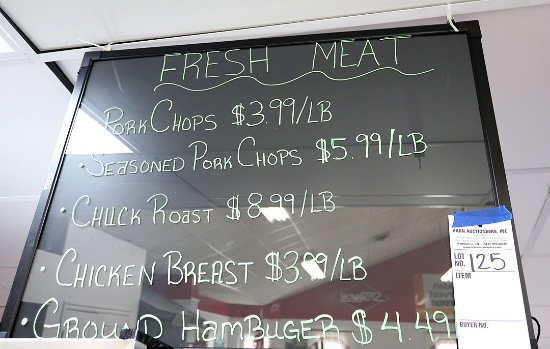 FRESH MEAT
PORK CHOPS $3.99/LB
• SEASONED PORK CHOPS $5.99/LB
• CHUCK ROAST $8.99/LB
• CHICKEN BREAST $3.99/LB
• GROUND HAMBUGER $4.49
HAHN AUCTIONEERS, INC
LOT NO. 125
ITEM
BUYER NO.